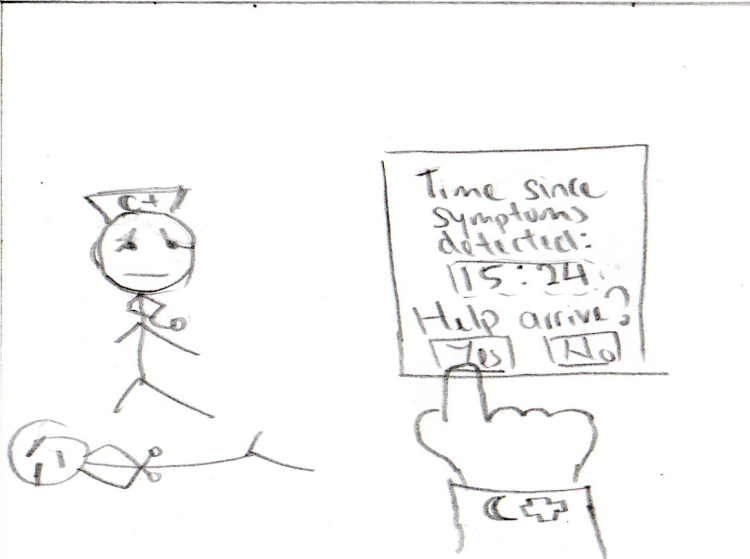 Time since
symptoms
detected:
15:24
Help arrive?
Yes No